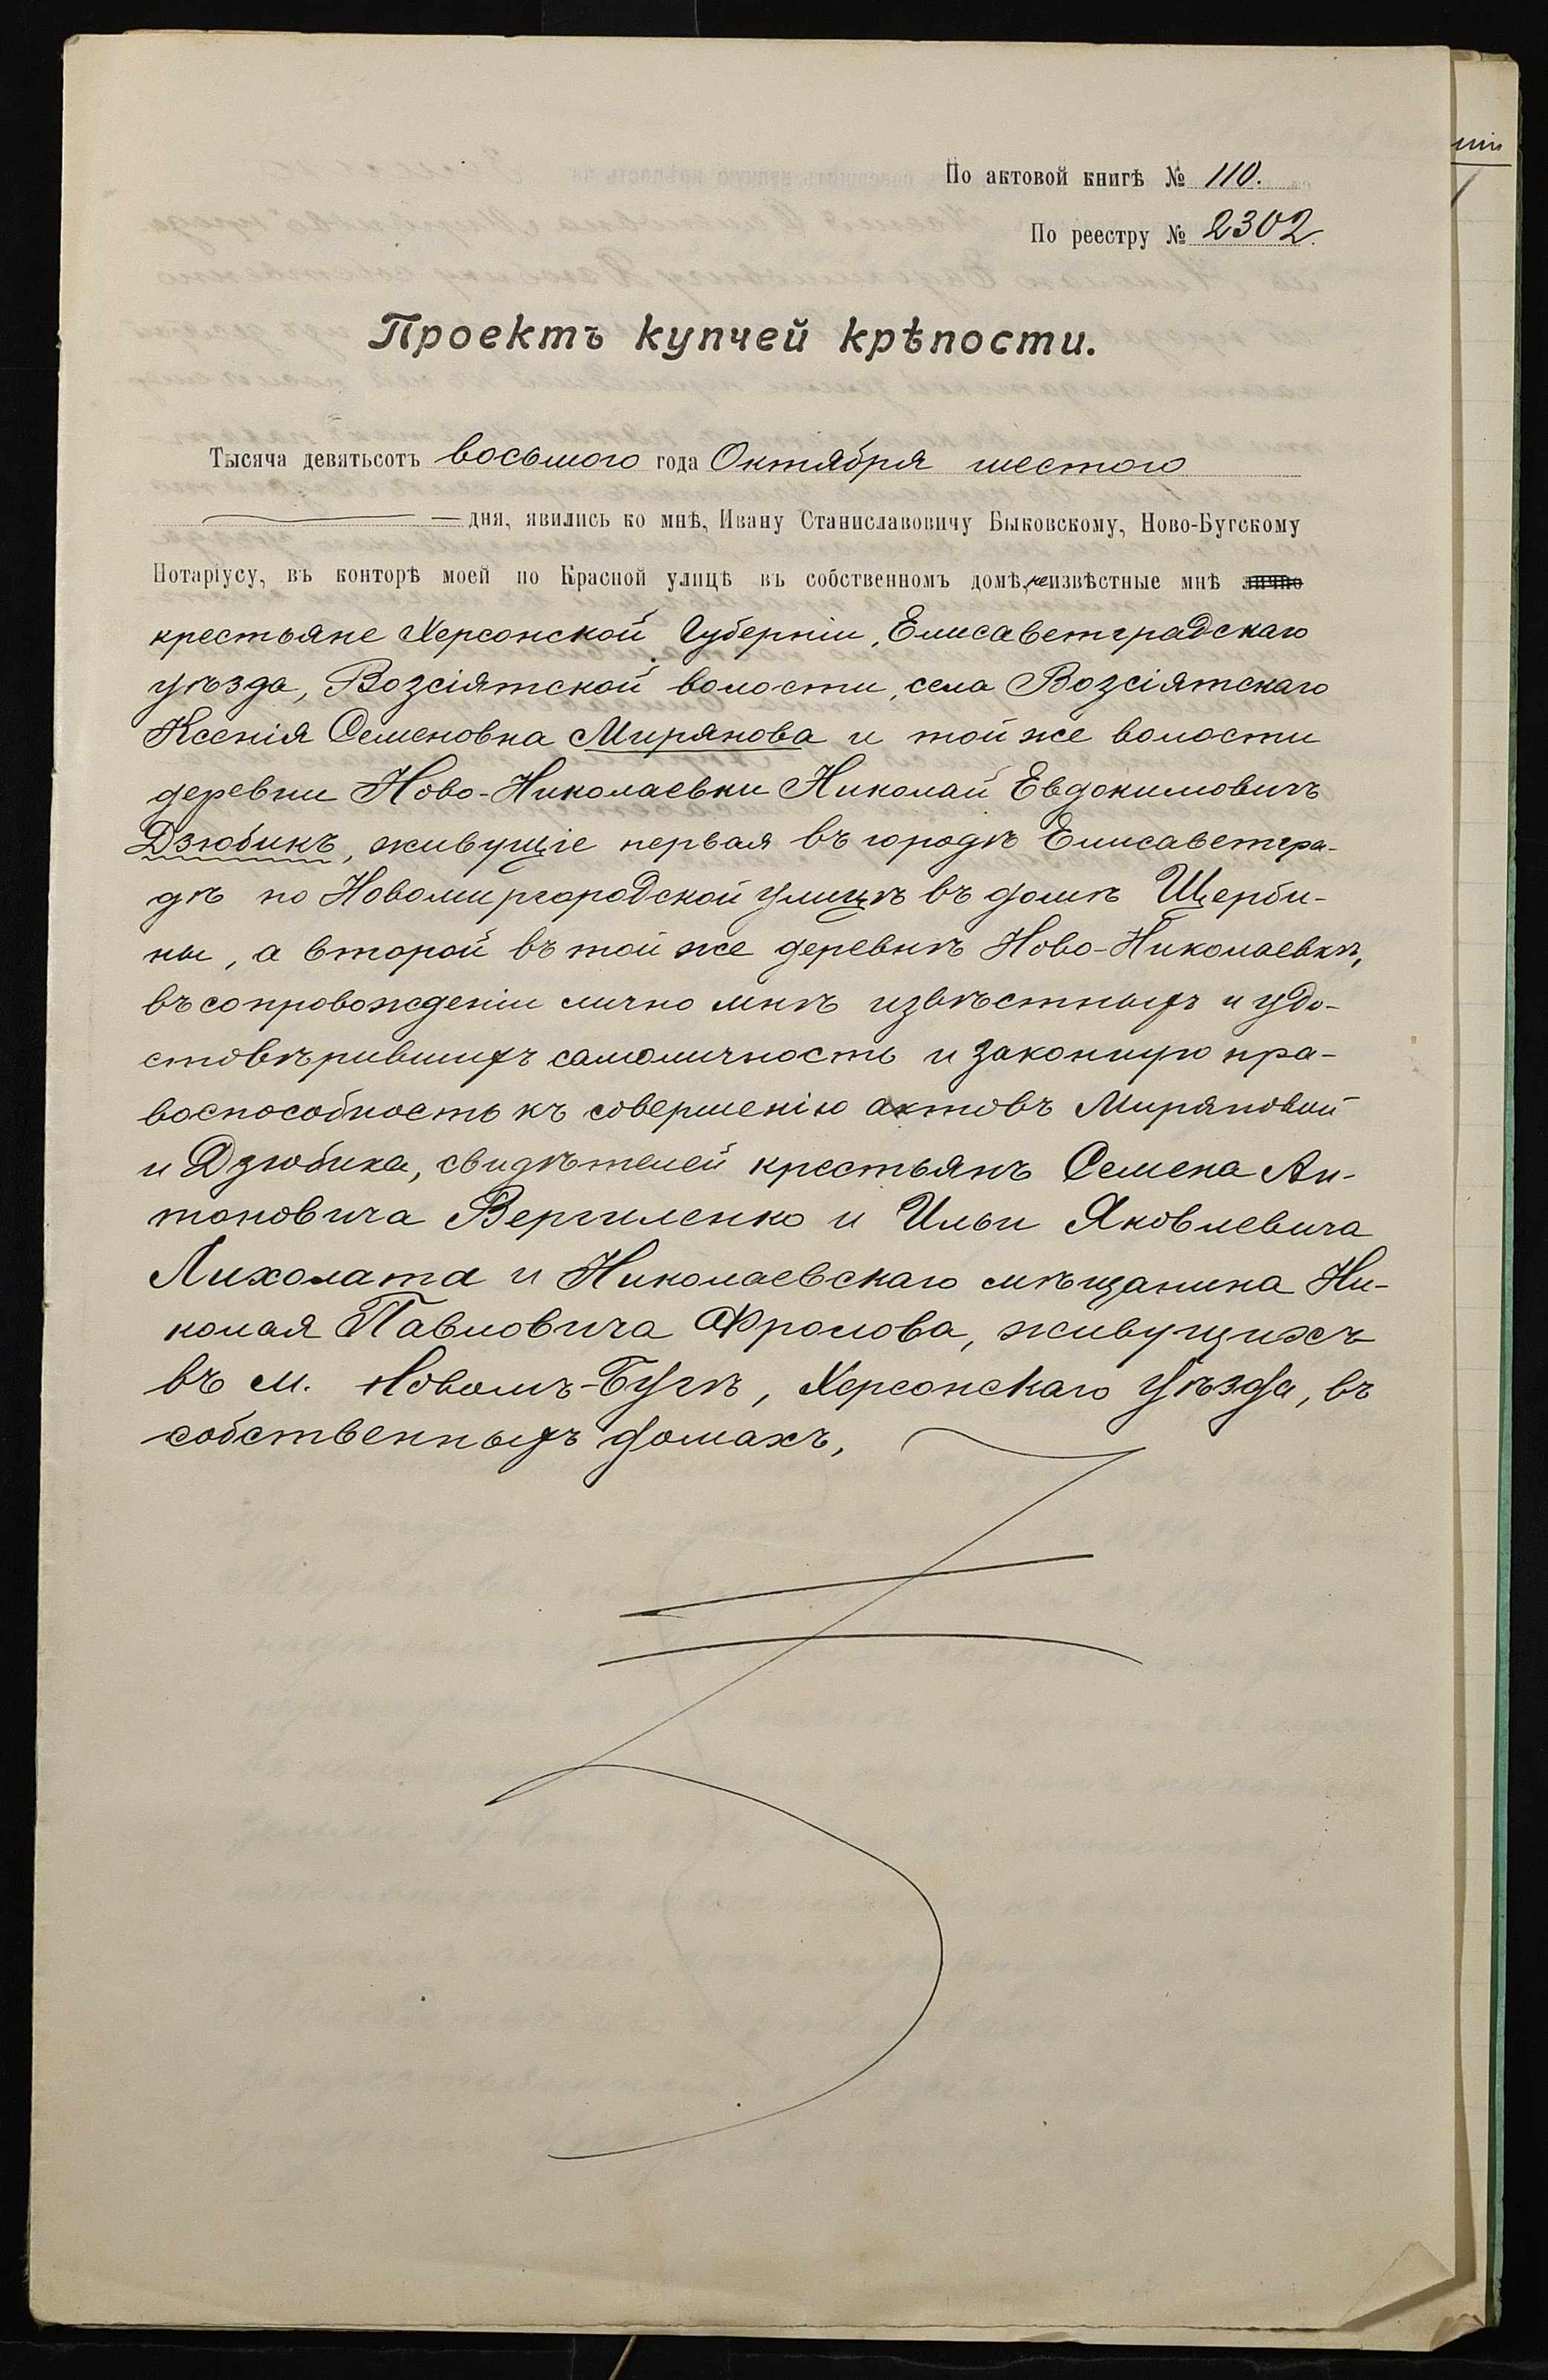 По актовой книгѣ № 110.
По реестру № 2302.
Проектъ купчей крѣпости.
Тысяча девятьсотъ восьмого года Октября шестого
дня, явились ко мнѣ, Ивану Станиславовичу Быковскому, Ново-Бугскому
Нотаріусу, въ конторѣ моей по Красной улицѣ въ собственномъ домѣ, неизвѣстные мнѣ лично
крестьяне Херсонской Губерніи, Елисаветградскаго
уѣзда, Возсіятской волости, села Возсіятскаго
Ксенія Семеновна Мирянова и той же волости
деревни Ново-Николаевки Николай Евдокимовичъ
Дзюбикъ, живущіе первая въ городѣ Елисаветгра-
дѣ по Новомиргородской улицѣ въ домѣ Щерби-
ны, а второй въ той же деревнѣ Ново-Николаевкѣ,
въ сопровожденіи лично мнѣ извѣстныхъ и удо-
стовѣрившихъ самоличность и законную пра-
воспособность къ совершенію актовъ Миряновой
и Дзюбика, свидѣтелей крестьянъ Семена Ан-
тоновича Вергиленко и Ильи Яковлевича
Лихолата и Николаевскаго мѣщанина Ни-
колая Павловича Фролова, живущихъ
въ м. Новомъ-Бугѣ, Херсонскаго уѣзда, въ
собственныхъ домахъ,